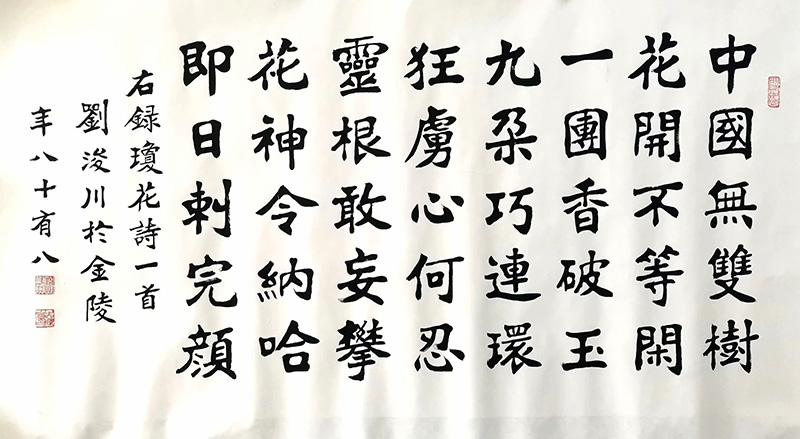 中國無雙樹
花開不等閑
一團香破玉
九朶巧連環
狂虜心何忍
靈根敢妄攀
花神令納哈
即日剌完顔
右録瓊花詩一首
劉浚川於金陵
年八十有八